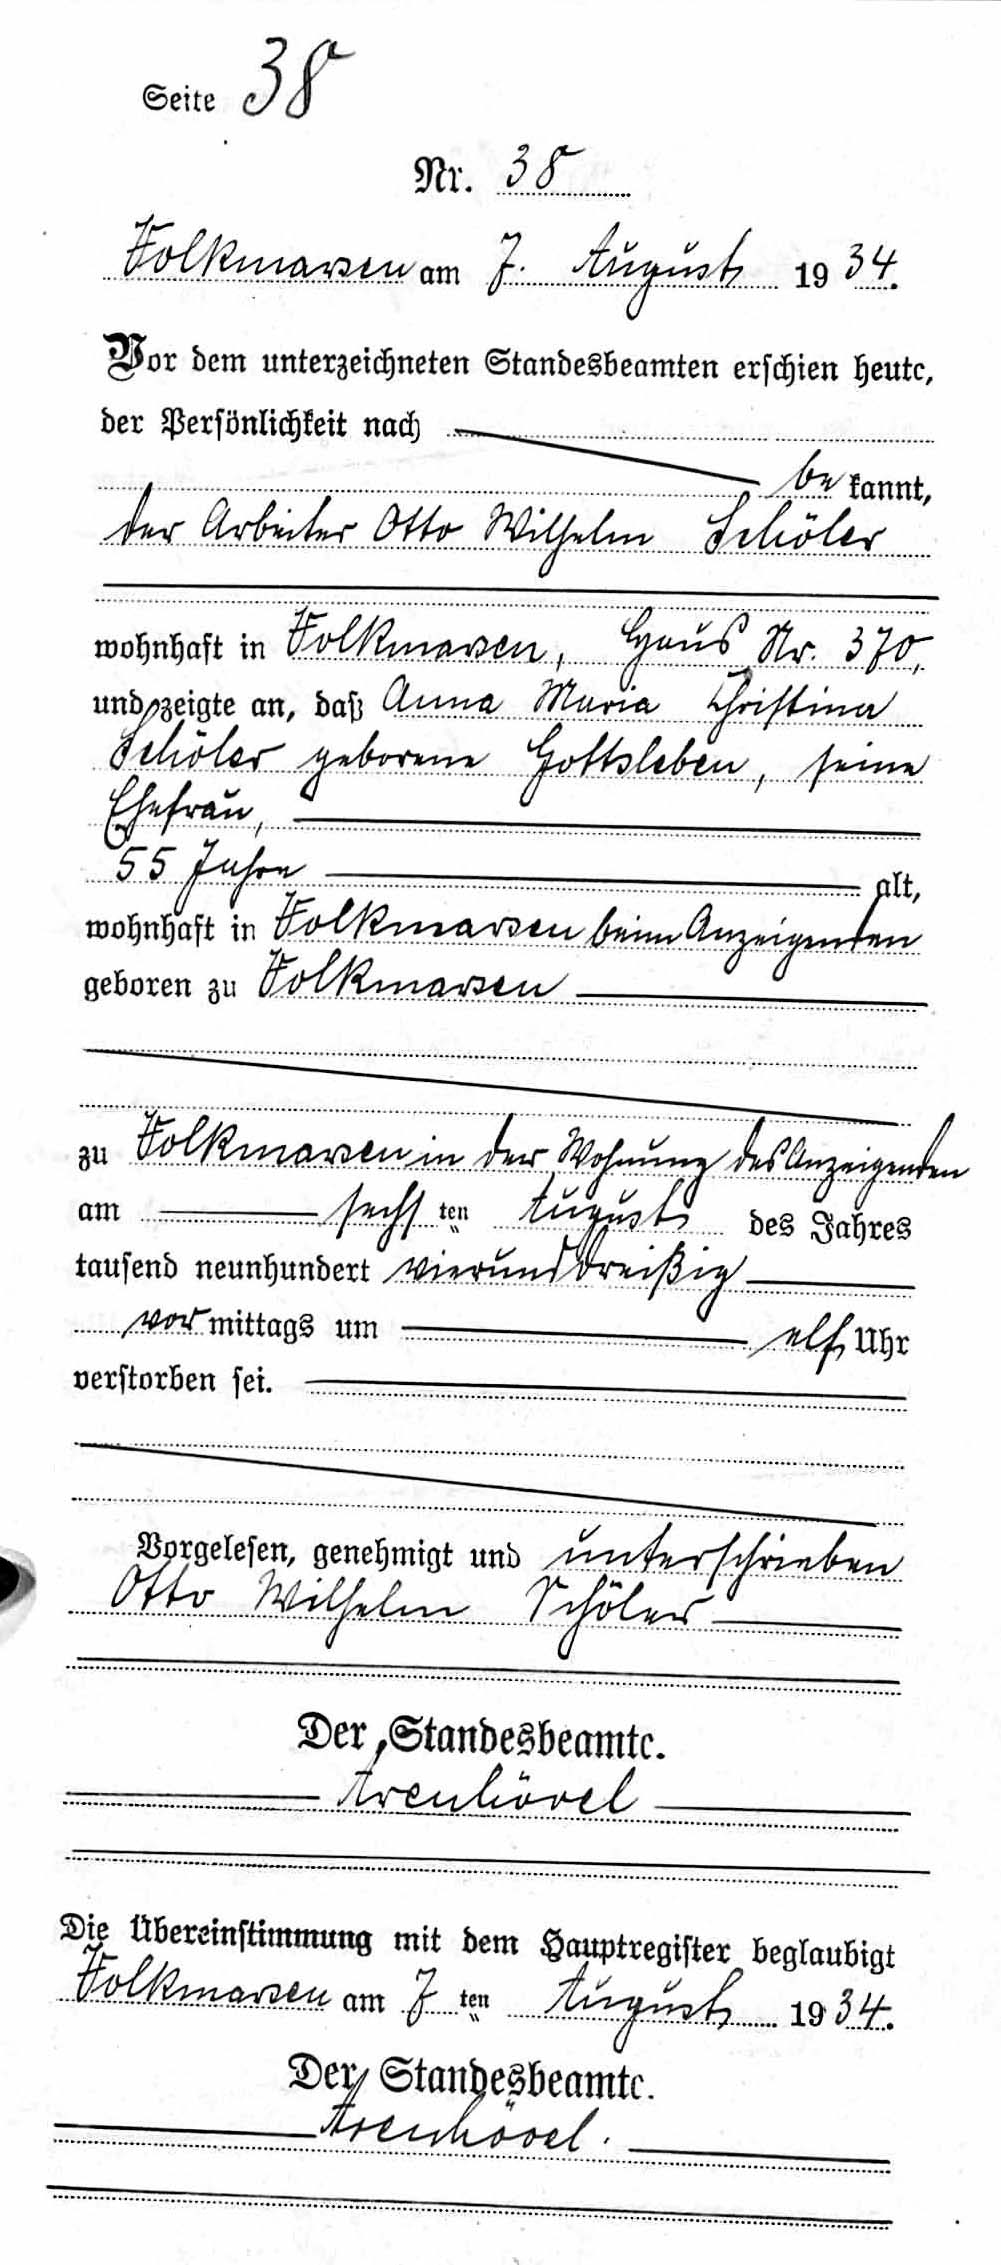 Seite 38
Nr. 38
Volkmarsen am 7. August 1934.
Vor dem unterzeichneten Standesbeamten erschien heute,
der Persönlichkeit nach
be kannt,
der Arbeiter Otto Wilhelm Schöler
wohnhaft in Volkmarsen, Haus Nr. 370,
und zeigte an, daß Anna Maria Christina
Schöler geborene Gottsleben, seine
Ehefrau,
55 Jahre alt,
wohnhaft in Volkmarsen beim Anzeigenden
geboren zu Volkmarsen
zu Volkmarsen in der Wohnung des Anzeigenden
am sechsten August des Jahres
tausend neunhundert vierunddreißig
vormittags um elf Uhr
verstorben sei.
Vorgelesen, genehmigt und unterschrieben
Otto Wilhelm Schöler
Der Standesbeamte.
Arenhövel
Die Übereinstimmung mit dem Hauptregister beglaubigt
Volkmarsen am 7ten August 1934.
Der Standesbeamte.
Arenhövel.